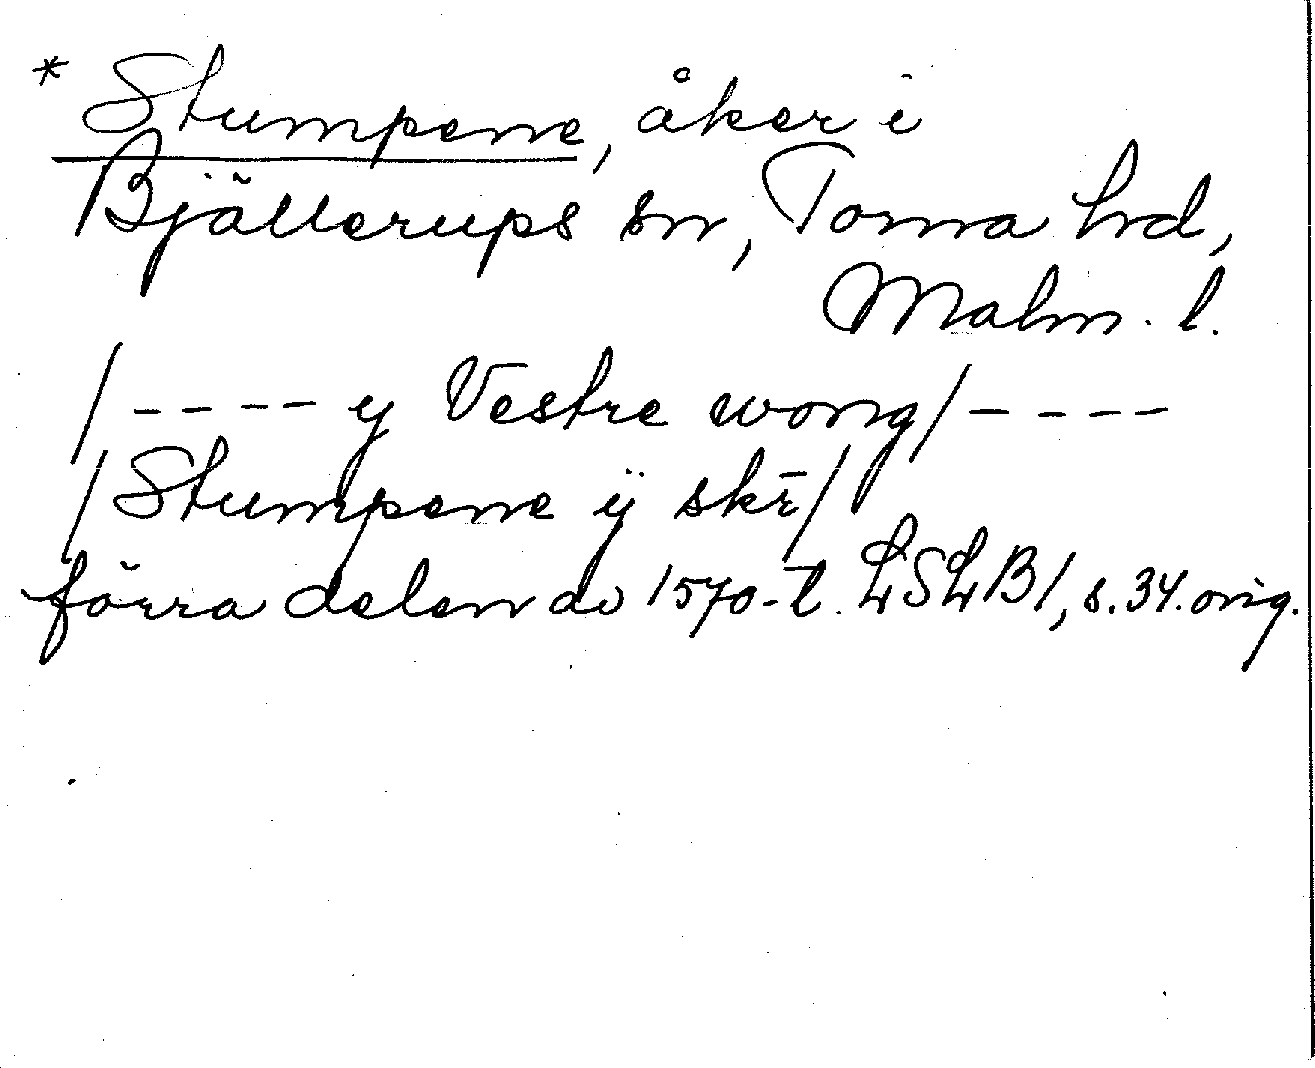 * Stumpene, åker i
Bjällerups sn, Torna hd,
Malm. l.
/---- y Vestre wong/----
/Stumpene ÿ skr̄/
förra delen av 1570-t. LSLB1, s. 34. orig.